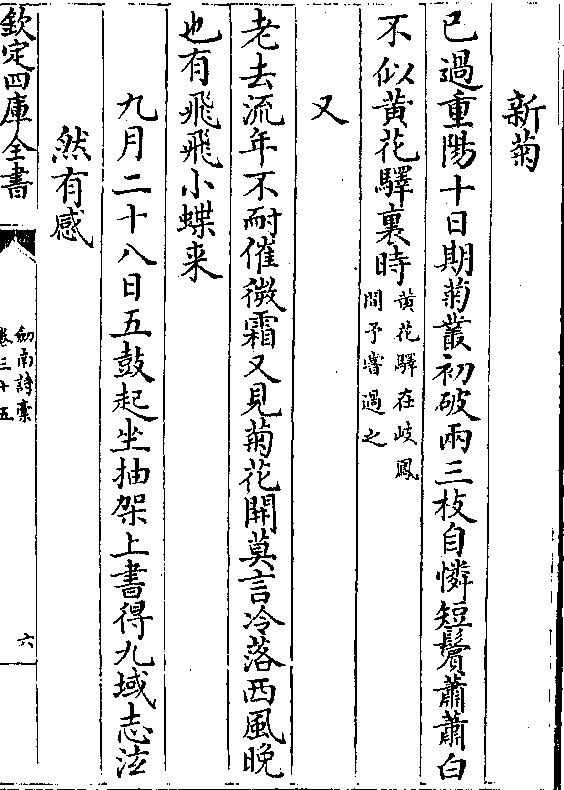 新菊
已過重陽十日期菊叢初破兩三枝自憐短鬢蕭蕭白
不似黄花驛裏時黄花驛在岐鳳間予嘗過之
又
老去流年不耐催微霜又見菊花開莫言冷落西風晚
也有飛飛小蝶来
九月二十八日五鼓起坐抽架上書得九域志泫
然有感
欽定四庫全書
劎南詩藁
卷三十五
六